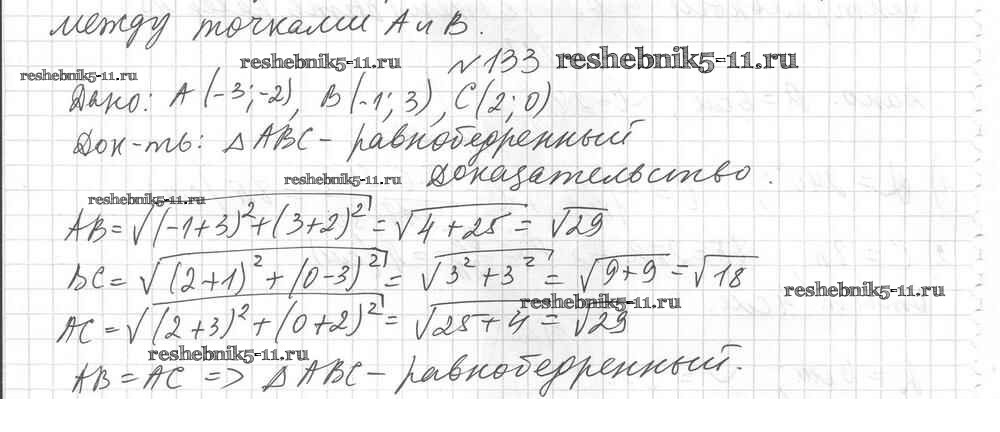 между точками А и В.
reshebnik5-11.ru reshebnik5-11.ru №133 reshebnik5-11.ru
Дано: А (-3; -2), В (-1; 3), С (2; 0)
Док-ть: △ АВС - равнобедренный
reshebnik5-11.ru Доказательство.
reshebnik5-11.ru
АВ = √((-1+3)²+(3+2)²) = √(4+25) = √29
ВС = √((2+1)²+(0-3)²) = √(3²+3²) = √(9+9) = √18
reshebnik5-11.ru reshebnik5-11.ru
АС = √((2+3)²+(0+2)²) = √(25+4) = √29
reshebnik5-11.ru
АВ = АС => △ АВС - равнобедренный.